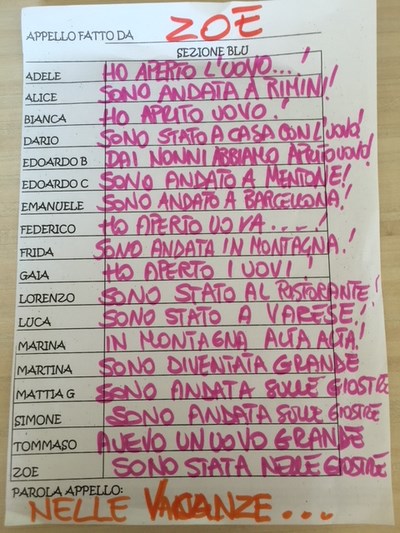 APPELLO FATTO DA ZOE
SEZIONE BLU
ADELE HO APERTO L'UOVO...!
ALICE SONO ANDATA A RIMINI!
BIANCA HO APRITO UOVO!
DARIO SONO STATO A CASA CON L'UOVO!
EDOARDO B DAI NONNI ABBIAMO APRITO UOVO!
EDOARDO C SONO ANDATO A MENTONE!
EMANUELE SONO ANDATO A BARCELLONA!
FEDERICO HO APERTO UOVA....!
FRIDA SONO ANDATA IN MONTAGNA.!
GAIA HO APERTO I UOVI!
LORENZO SONO STATO AL RISTORANTE!
LUCA SONO STATO A VARESE!
MARINA IN MONTAGNA ALTA ALTA!
MARTINA SONO DIVENTATA GRANDE
MATTIA G SONO ANDATA SULLE GIOSTRE
SIMONE SONO ANDATA SULLE GIOSTRE
TOMMASO AVEVO UN UOVO GRANDE
ZOE SONO STATA NELLE GIOSTRE
PAROLA APPELLO:
NELLE VACANZE...